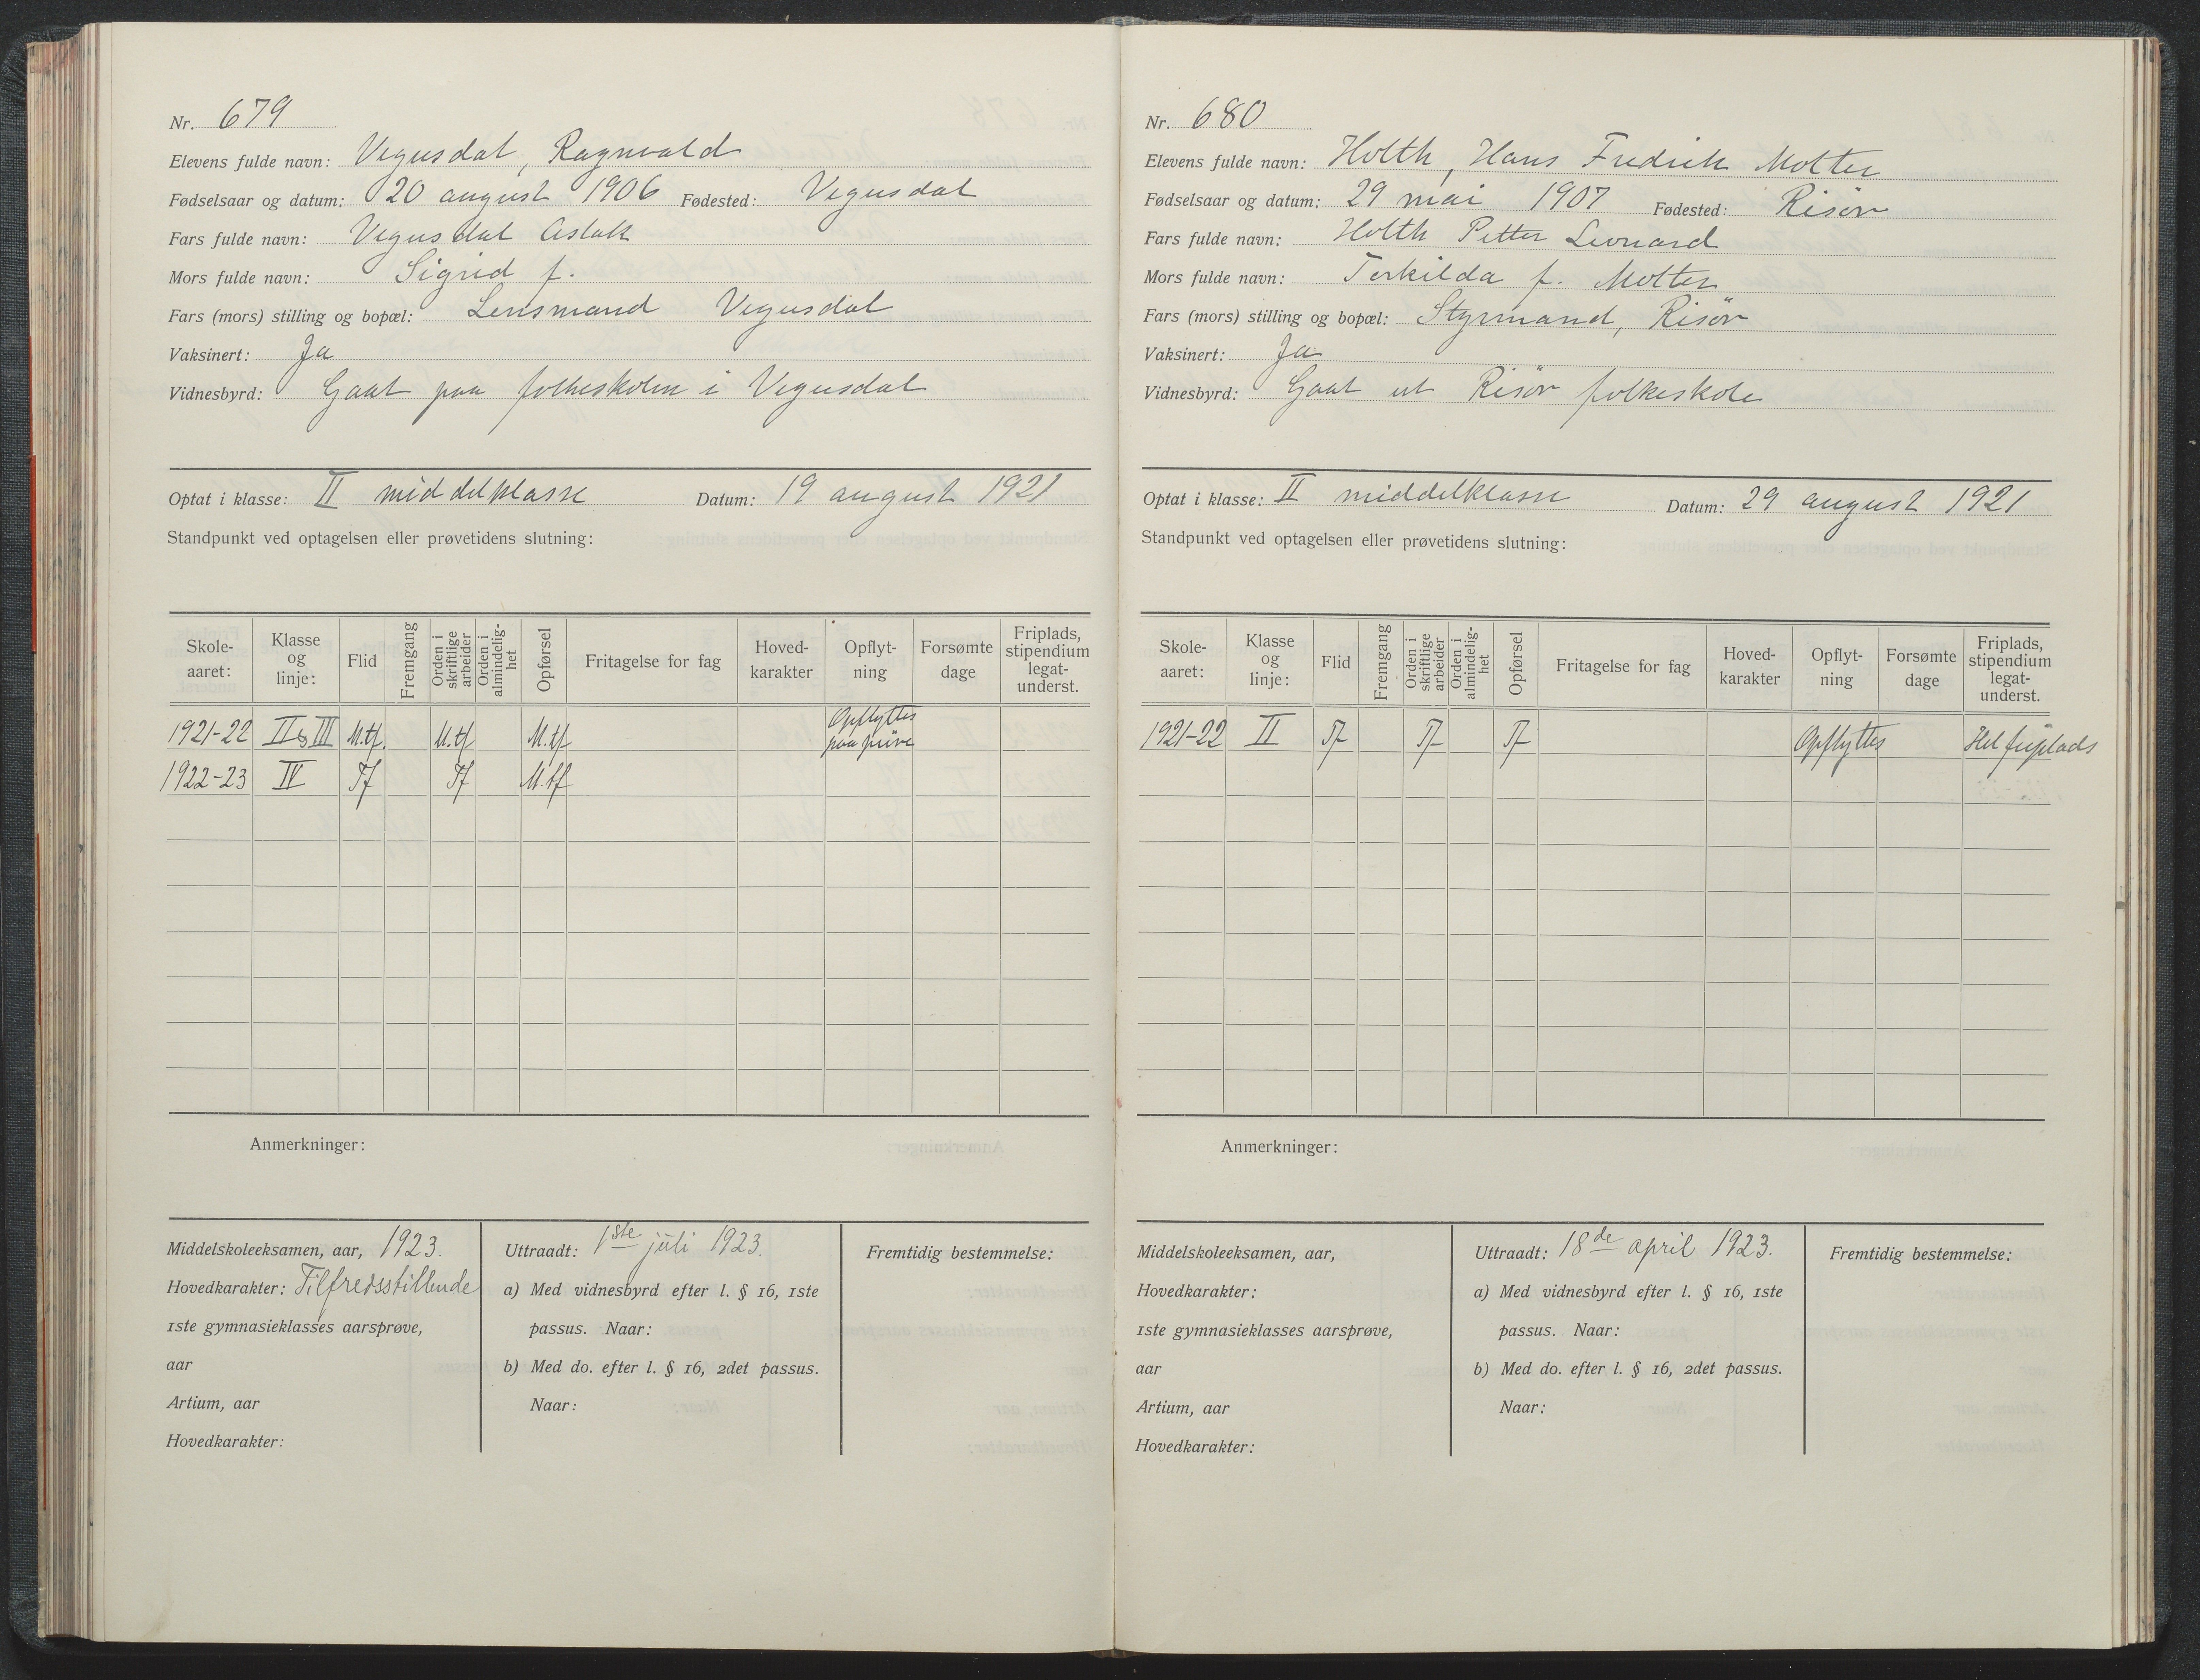 Nr. 679
Elevens fulde navn: Vegusdal, Ragnvald
Fødselsaar og datum: 20 august 1906 Fødested: Vegusdal
Fars fulde navn: Vegusdal Aslak
Mors fulde navn: Sigrid f.
Fars (mors) stilling og bopæl: Lensmand Vegusdal
Vaksinert: Ja
Vidnesbyrd: Gaat paa folkeskolen i Vegusdal
Optat i klasse: II middelklasse Datum: 19 august 1921
Standpunkt ved optagelsen eller prøvetidens slutning:
Skole-aaret: Klasse og linje: Flid Fremgang Orden i skriftlige arbeider Orden i almindelig-het Opførsel Fritagelse for fag Hoved-karakter Opflyt-ning Forsømte dage Friplads, stipendium legat-underst.
1921-22 II & III M.tf. M.tf M.tf Opflyttes paa prøve
1922-23 IV Tf Tf M.tf
Anmerkninger:
Middelskoleeksamen, aar, 1923.
Hovedkarakter: Tilfredsstillende
1ste gymnasieklasses aarsprøve,
aar
Artium, aar
Hovedkarakter:
Uttraadt: 1ste juli 1923.
a) Med vidnesbyrd efter l. § 16, 1ste
passus. Naar:
b) Med do. efter l. § 16, 2det passus.
Naar:
Fremtidig bestemmelse:
Nr. 680
Elevens fulde navn: Holth, Hans Fredrik Molter
Fødselsaar og datum: 29 mai 1907 Fødested: Risör
Fars fulde navn: Holth Petter Leonard
Mors fulde navn: Terkilda f. Molter
Fars (mors) stilling og bopæl: Styrmand, Risör
Vaksinert: Ja
Vidnesbyrd: Gaat ut Risör folkeskole
Optat i klasse: II middelklasse Datum: 29 august 1921
Standpunkt ved optagelsen eller prøvetidens slutning:
Skole-aaret: Klasse og linje: Flid Fremgang Orden i skriftlige arbeider Orden i almindelig-het Opførsel Fritagelse for fag Hoved-karakter Opflyt-ning Forsømte dage Friplads, stipendium legat-underst.
1921-22 II Tf Tf Tf Opflyttes Hel friplads
Anmerkninger:
Middelskoleeksamen, aar,
Hovedkarakter:
1ste gymnasieklasses aarsprøve,
aar
Artium, aar
Hovedkarakter:
Uttraadt: 18de april 1923.
a) Med vidnesbyrd efter l. § 16, 1ste
passus. Naar:
b) Med do. efter l. § 16, 2det passus.
Naar:
Fremtidig bestemmelse: